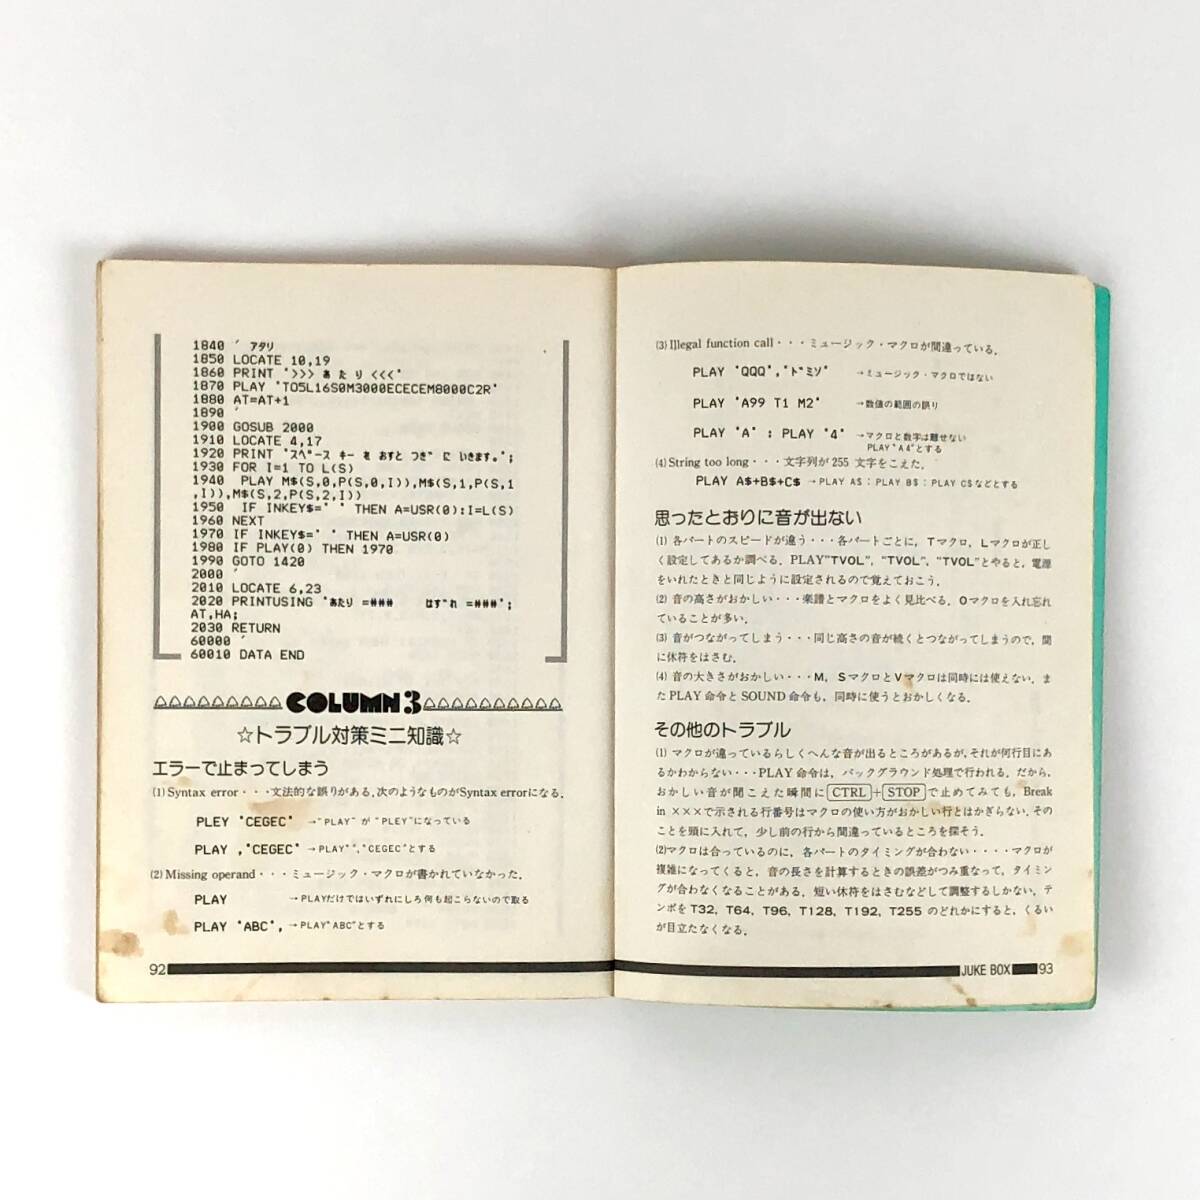 1840 ' アタリ
1850 LOCATE 10,19
1860 PRINT ">>> あ た り <<<"
1870 PLAY "TO5L16S0M3000ECECEM8000C2R"
1880 AT=AT+1
1890 '
1900 GOSUB 2000
1910 LOCATE 4,17
1920 PRINT "スペース キー を おすと つぎ に いきます。";
1930 FOR I=1 TO L(S)
1940 PLAY M$(S,0,P(S,0,I)),M$(S,1,P(S,1
,I)),M$(S,2,P(S,2,I))
1950 IF INKEY$=" " THEN A=USR(0):I=L(S)
1960 NEXT
1970 IF INKEY$=" " THEN A=USR(0)
1980 IF PLAY(0) THEN 1970
1990 GOTO 1420
2000 '
2010 LOCATE 6,23
2020 PRINTUSING "あたり =### はずれ =###";
AT,HA;
2030 RETURN
60000 '
60010 DATA END
COLUMN 3
☆トラブル対策ミニ知識☆
エラーで止まってしまう
(1) Syntax error・・・文法的な誤りがある。次のようなものがSyntax errorになる。
PLEY "CEGEC" →"PLAY" が "PLEY"になっている
PLAY ,"CEGEC" →PLAY" ","CEGEC"とする
(2) Missing operand・・・ミュージック・マクロが書かれていなかった。
PLAY →PLAYだけではいずれにしろ何も起こらないので取る
PLAY "ABC", →PLAY"ABC"とする
92
(3) Illegal function call・・・ミュージック・マクロが間違っている。
PLAY "QQQ","ドミソ" →ミュージック・マクロではない
PLAY "A99 T1 M2" →数値の範囲の誤り
PLAY "A" : PLAY "4" →マクロと数字は離せない
PLAY"A4"とする
(4) String too long・・・文字列が 255 文字をこえた。
PLAY A$+B$+C$ →PLAY A$：PLAY B$：PLAY C$などとする
思ったとおりに音が出ない
(1) 各パートのスピードが違う・・・各パートごとに，Tマクロ，Lマクロが正し
く設定してあるか調べる。PLAY"TVOL"，"TVOL"，"TVOL"とやると，電源
をいれたときと同じように設定されるので覚えておこう。
(2) 音の高さがおかしい・・・楽譜とマクロをよく見比べる。Oマクロを入れ忘れ
ていることが多い。
(3) 音がつながってしまう・・・同じ高さの音が続くとつながってしまうので，間
に休符をはさむ。
(4) 音の大きさがおかしい・・・M，SマクロとVマクロは同時には使えない。ま
た PLAY 命令と SOUND 命令も，同時に使うとおかしくなる。
その他のトラブル
(1) マクロが違っているらしくへんな音が出るところがあるが，それが何行目にあ
るかわからない・・・PLAY 命令は，バックグラウンド処理で行われる。だから，
おかしい音が聞こえた瞬間に CTRL + STOP で止めてみても，Break
in ×××で示される行番号はマクロの使い方がおかしい行とはかぎらない。その
ことを頭に入れて，少し前の行から間違っているところを探そう。
(2)マクロは合っているのに，各パートのタイミングが合わない・・・・マクロが
複雑になってくると，音の長さを計算するときの誤差がつみ重なって，タイミン
グが合わなくなることがある。短い休符をはさむなどして調整するしかない。テ
ンポを T32，T64，T96，T128，T192，T255 のどれかにすると，くるい
が目立たなくなる。
JUKE BOX 93